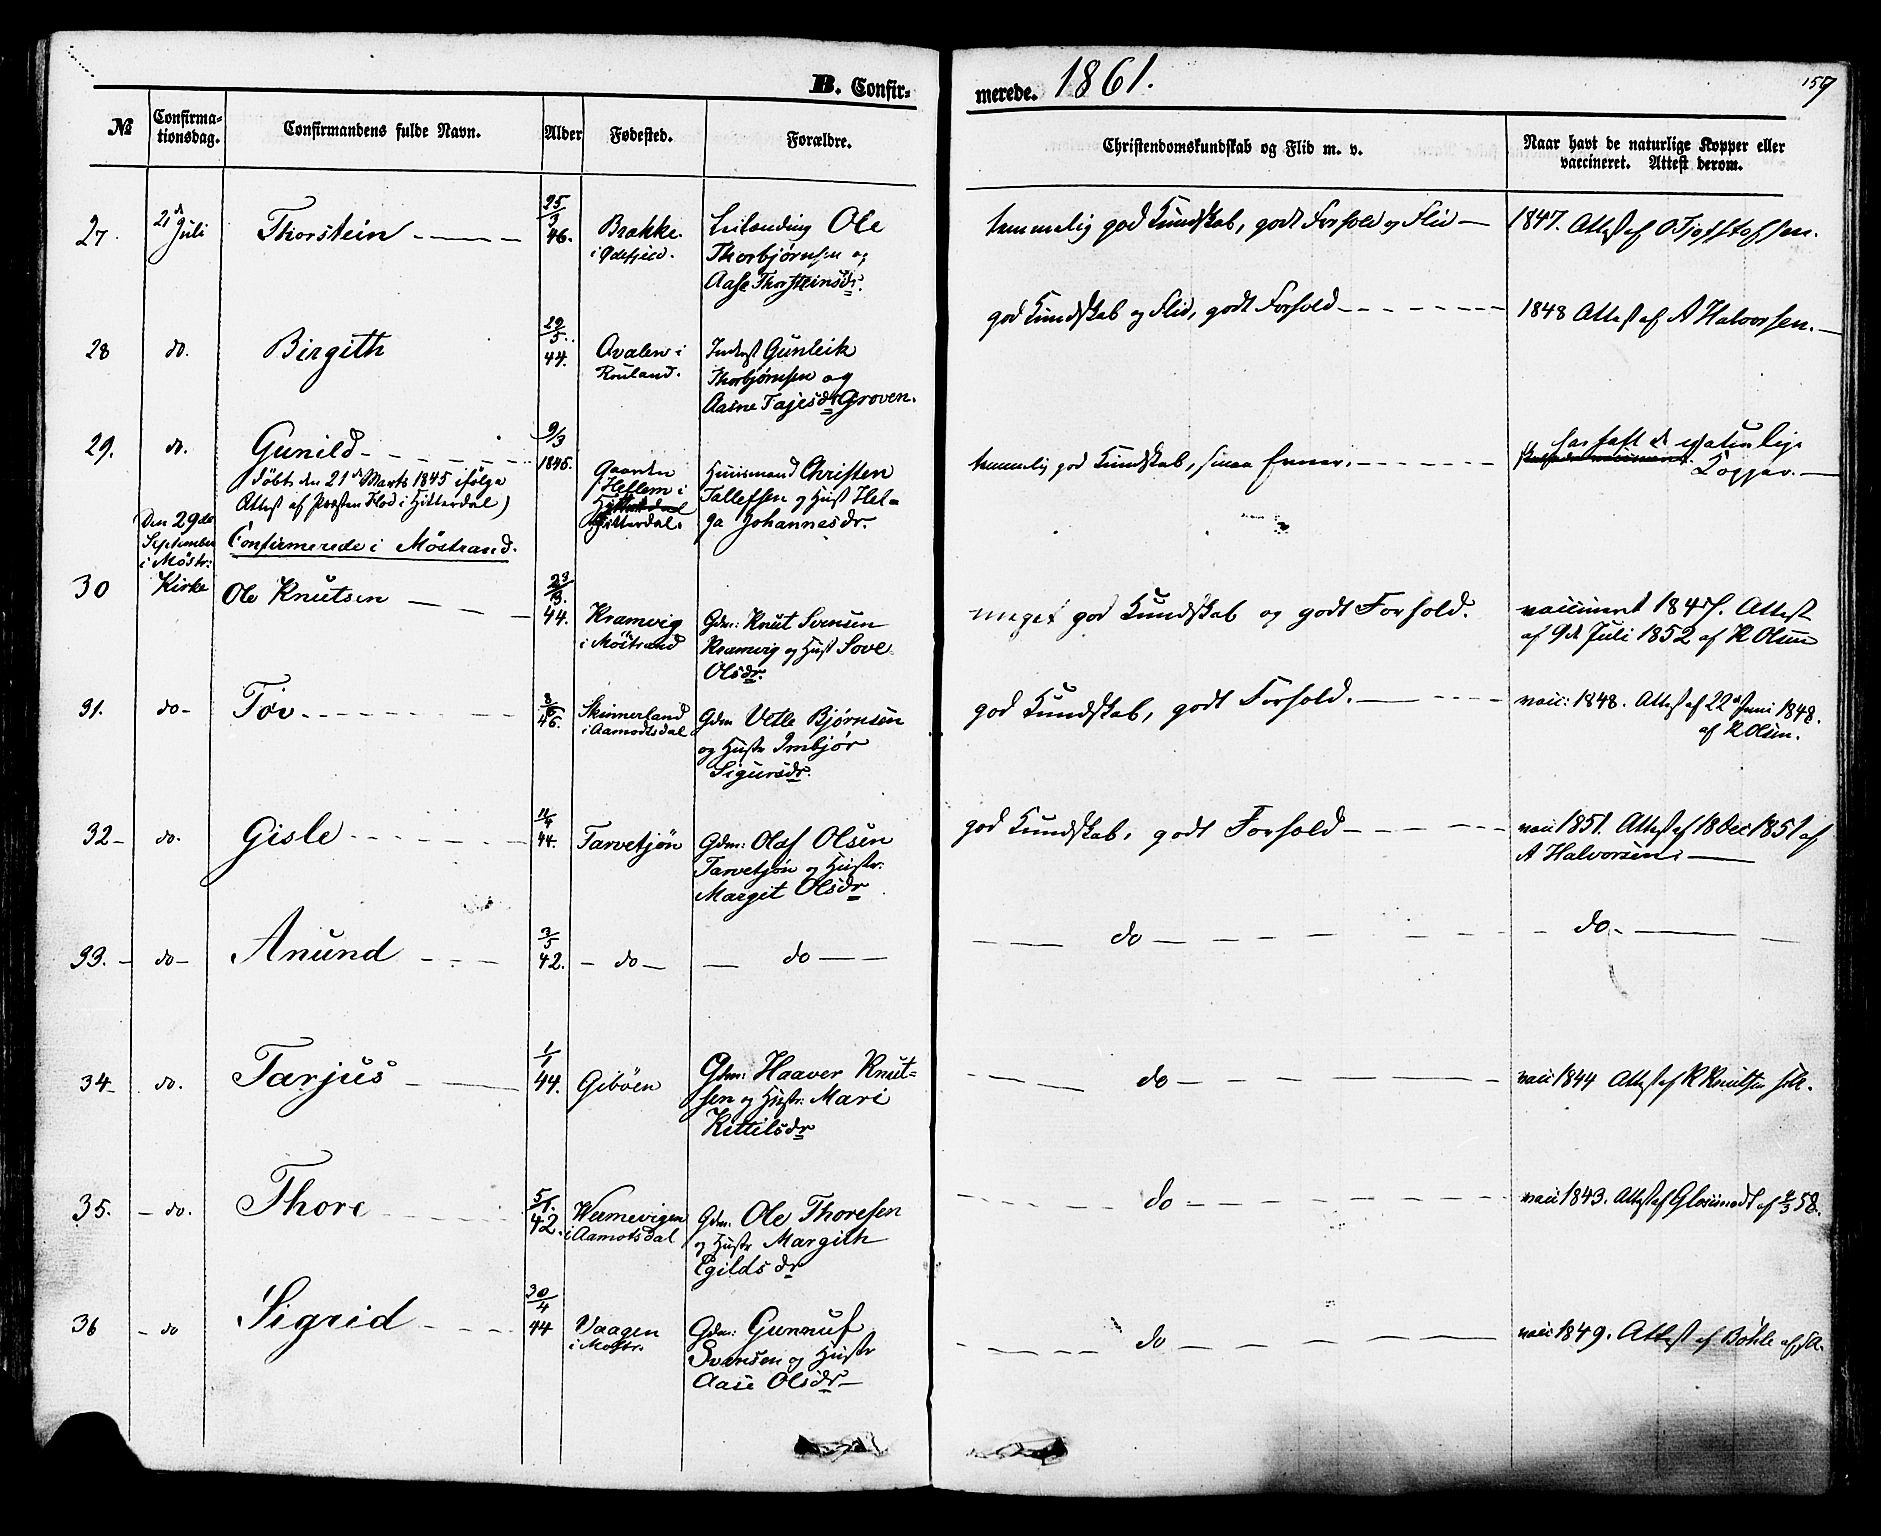 B. Confir-
merede. 1861.
157
№
Confirma-
tionsdag.
Confirmandens fulde Navn.
Alder
Fødested.
Forældre.
Christendomskundskab og Flid m. v.
Naar havt de naturlige Kopper eller
vaccineret. Attest derom.
27.
21de
Juli
Thorstein
25
46.
Brakke
Leilending Ole
Thorbjørnsen og
Aase Thorsteinsdr.
temmelig god Kundskab, godt Forhold og Flid
1847. Attest af
28
do.
Birgith
29/5
44.
Ovalen i
Rauland.
Inderst Gunleik
Thorbjørnsen og
Aasne Tajesdr Groven.
god Kundskab og Flid, godt Forhold
1848 Attest af A Halvorsen.
29.
do.
Gunild
døbt den 21de Marts 1845 ifølge
Attest af Præsten i Hitterdal)
9/3
1845.
Gaarden
Hellem i
Hitterdal
Hitterdal.
Huusmand Christen
Tallefsen og Hust Hel-
ga Johannesdr.
temmelig god Kundskab, smaa Evner.
har haft de naturlige
Kopper.
Den 29de
September
i Møstr:
Kirke
Confirmerede i Møstrand.
30
Ole Knutsen
44.
Kramvig
i Møstrand
Gdm: Knut Svensen
Kramvig og Hust Sove
Olsdr.
meget god Kundskab og godt Forhold.
vaccineret Attest
af 9de Juli 1852 af K Olsen
31.
do-
Tov
46.
Skinnerland
i Aamodtsdal
Gdm Vetle Bjørnsen
og Hustr Imbjør
Sigursdr.
god Kundskab, godt Forhold.
vacc: 1848. Attest af 22de Juni 1848.
af K Olsen.
32-
do.
Gisle
44.
Tarvetjøn
Gdm: Olaf Olsen
Tarvetjøn og Hustr.
Margit Olsdr
god Kundskab, godt Forhold
vacc 1851. Attest af 18 Dec 1851 af
A Halvorsen.
33.
do
Anund
3/5
42.
do
do
do
do
34
do.
Tarjus
1/1
44.
Gibøen
Gdm: Haaver Knut-
sen og Hustr: Mari
Kittilsdr
do
vacc 1844 Attest af K Knutsen
35.
do.
Thore
42.
Wermevigen
i Aamotsdal
Gdm. Ole Thoresen
og Hustr Margith
Egildsdr
do
vacc 1843. Attest af Glosimodt af
36
do
Sigrid
30/4
44
Vaagen
i Møstr.
Gdm: Gunnuf
Svensen og Hustr
Aase Olsdr
do
vacc 1849. Attest af Bøhle af